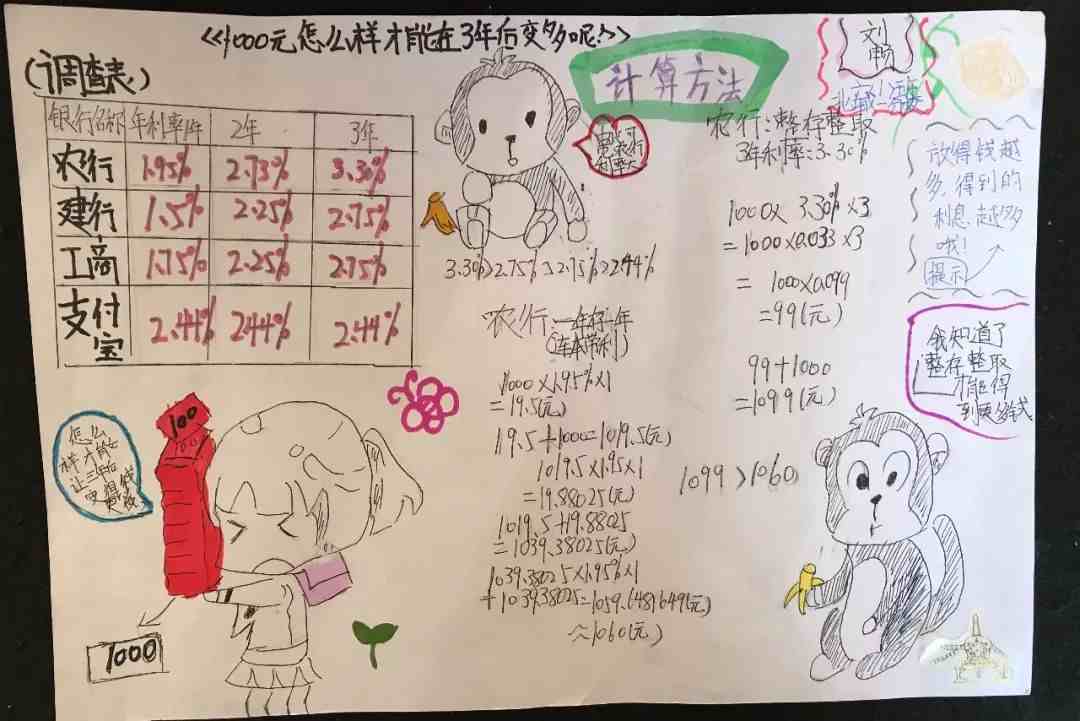 《1000元怎么样才能在3年后变多呢?》
(调查表)
银行名称 年利率1年 2年 3年
农行 1.95% 2.73% 3.30%
建行 1.5% 2.25% 2.75%
工商 1.75% 2.25% 2.75%
支付宝 2.44% 2.44% 2.44%
计算方法
刘畅
3.30%>2.75%≥2.75%>2.44%
农行:一年存一年
(连本带利)
1000×1.95%×1
=19.5(元)
19.5+1000=1019.5(元)
1019.5×1.95×1
=19.88025(元)
1019.5+19.88025
=1039.38025(元)
1039.38025×1.95%×1
+1039.38025=1059.6481649(元)
≈1060(元)
农行:整存整取
3年利率:3.30%
1000×3.30%×3
=1000×0.033×3
=1000×0.099
=99(元)
99+1000
=1099(元)
1099>1060
放得钱越
多,得到的
利息越多
哦!
提示
我知道了
整存整取
才能得
到更多钱
怎么
样才能
让三年后
100
1000